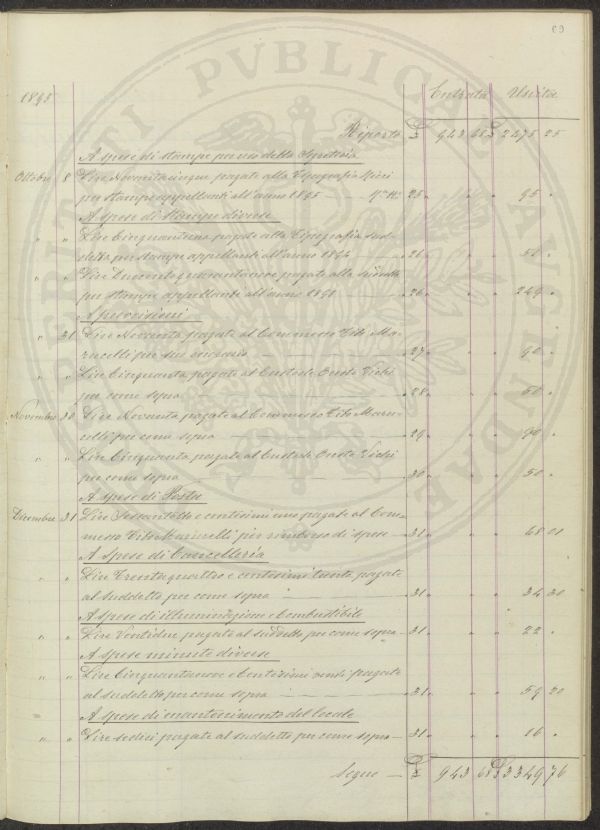 69
1895
Entrata Uscita
Riporto £ 943 68 £ 2475 25
A spese di stampe per uso della Segreteria
Ottobre 8 Lire Novantacinque pagate alla Tipografia
per stampe appellanti all'anno 1895 — 25 " " 95 "
A spese di Stampe diverse
" " Lire Cinquantuna pagate alla Tipografia sud-
detta per stampe appellanti all'anno 1894 — 26 " " 50 "
" " Lire Duecentoquarantanove pagate alla
per stampe appellanti all'anno — 26 " " 249 "
A provvisioni
" 31 Lire Novanta pagate al Commesso Tito Ma-
rucelli per suo onorario — 27 " " 90 "
" " Lire Cinquanta pagate al Custode Oreste Vichi
per come sopra — 28 " " 50 "
Novembre 30 Lire Novanta pagate al Commesso Tito Maru-
celli per come sopra — 29 " " 90 "
" " Lire Cinquanta pagate al Custode Oreste Vichi
per come sopra — 30 " " 50 "
A spese di Posta
Dicembre 31 Lire Sessantotto e centesimi uno pagate al Com-
messo Tito Marucelli per rimborso di spese — 31 " " 68 01
A Spese di Cancelleria
" " Lire Trentaquattro e centesimi trenta pagate
al suddetto per come sopra — 31 " " 34 30
A spese di illuminazione e Combustibile
" " Lire Ventidue pagate al suddetto per come sopra — 31 " " 22 "
A Spese minute diverse
" " Lire Cinquantanove e Centesimi venti pagate
al suddetto per come sopra — 31 " " 59 20
A spese di mantenimento del locale
" " Lire sedici pagate al suddetto per come sopra — 31 " " 16 "
Segue — £ 943 68 £ 3349 76
PUBLICAE